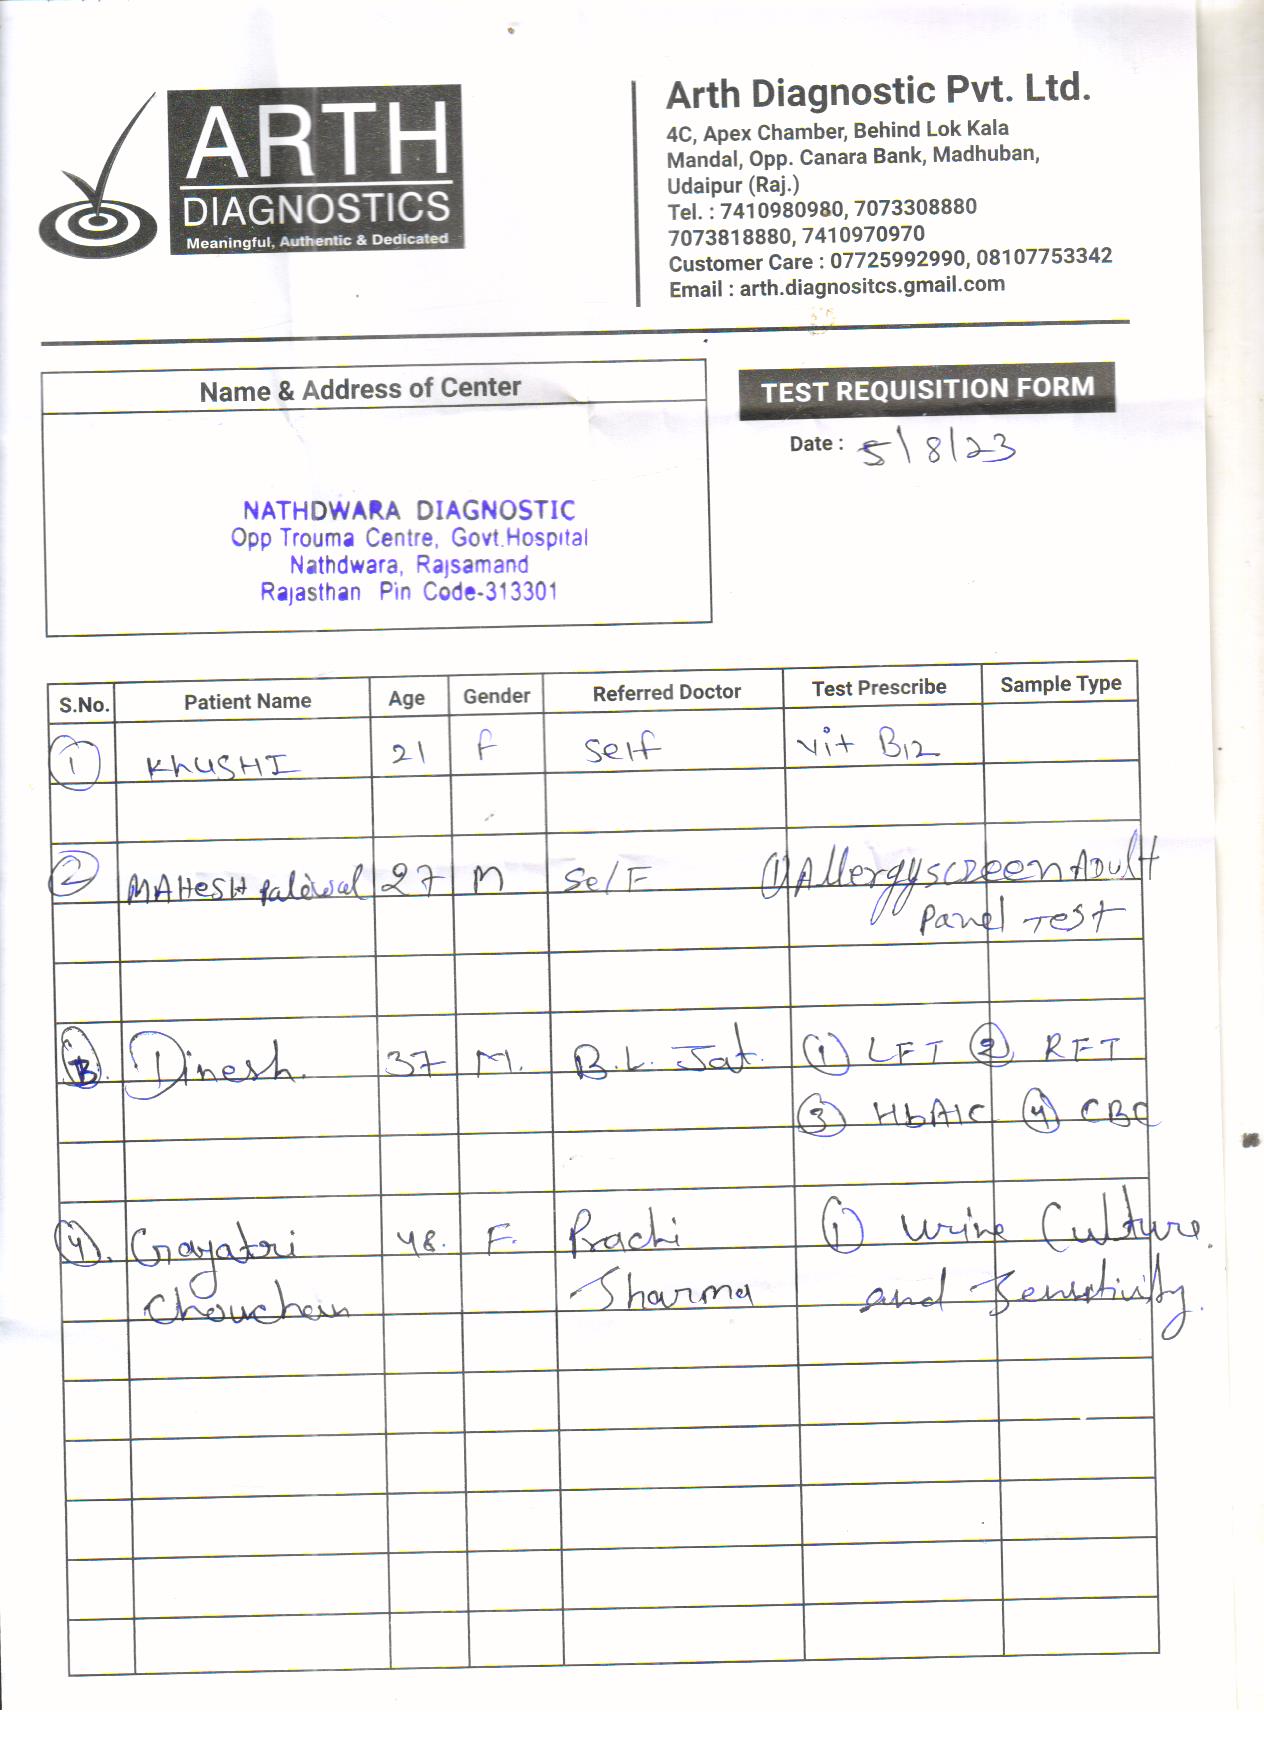 ARTH
DIAGNOSTICS
Meaningful, Authentic & Dedicated
Arth Diagnostic Pvt. Ltd.
4C, Apex Chamber, Behind Lok Kala
Mandal, Opp. Canara Bank, Madhuban,
Udaipur (Raj.)
Tel. : 7410980980, 7073308880
7073818880, 7410970970
Customer Care : 07725992990, 08107753342
Email : arth.diagnositcs.gmail.com
Name & Address of Center
NATHDWARA DIAGNOSTIC
Opp Trouma Centre, Govt.Hospital
Nathdwara, Rajsamand
Rajasthan Pin Code-313301
TEST REQUISITION FORM
Date : 5\8\23
S.No. Patient Name Age Gender Referred Doctor Test Prescribe Sample Type
1 KhUSHI 21 F Self Vit B12
2 MAHESH paliwal 27 M Self (1) Allergyscreen ADult
Panel Test
3 Dinesh. 37 M. B.L. Jat. (1) LFT (2) RFT
(3) HbA1C (4) CBC
(4). Gayatri 48. F. Prachi (1) Urine Culture.
Chouchan Sharma and Sensitivity.